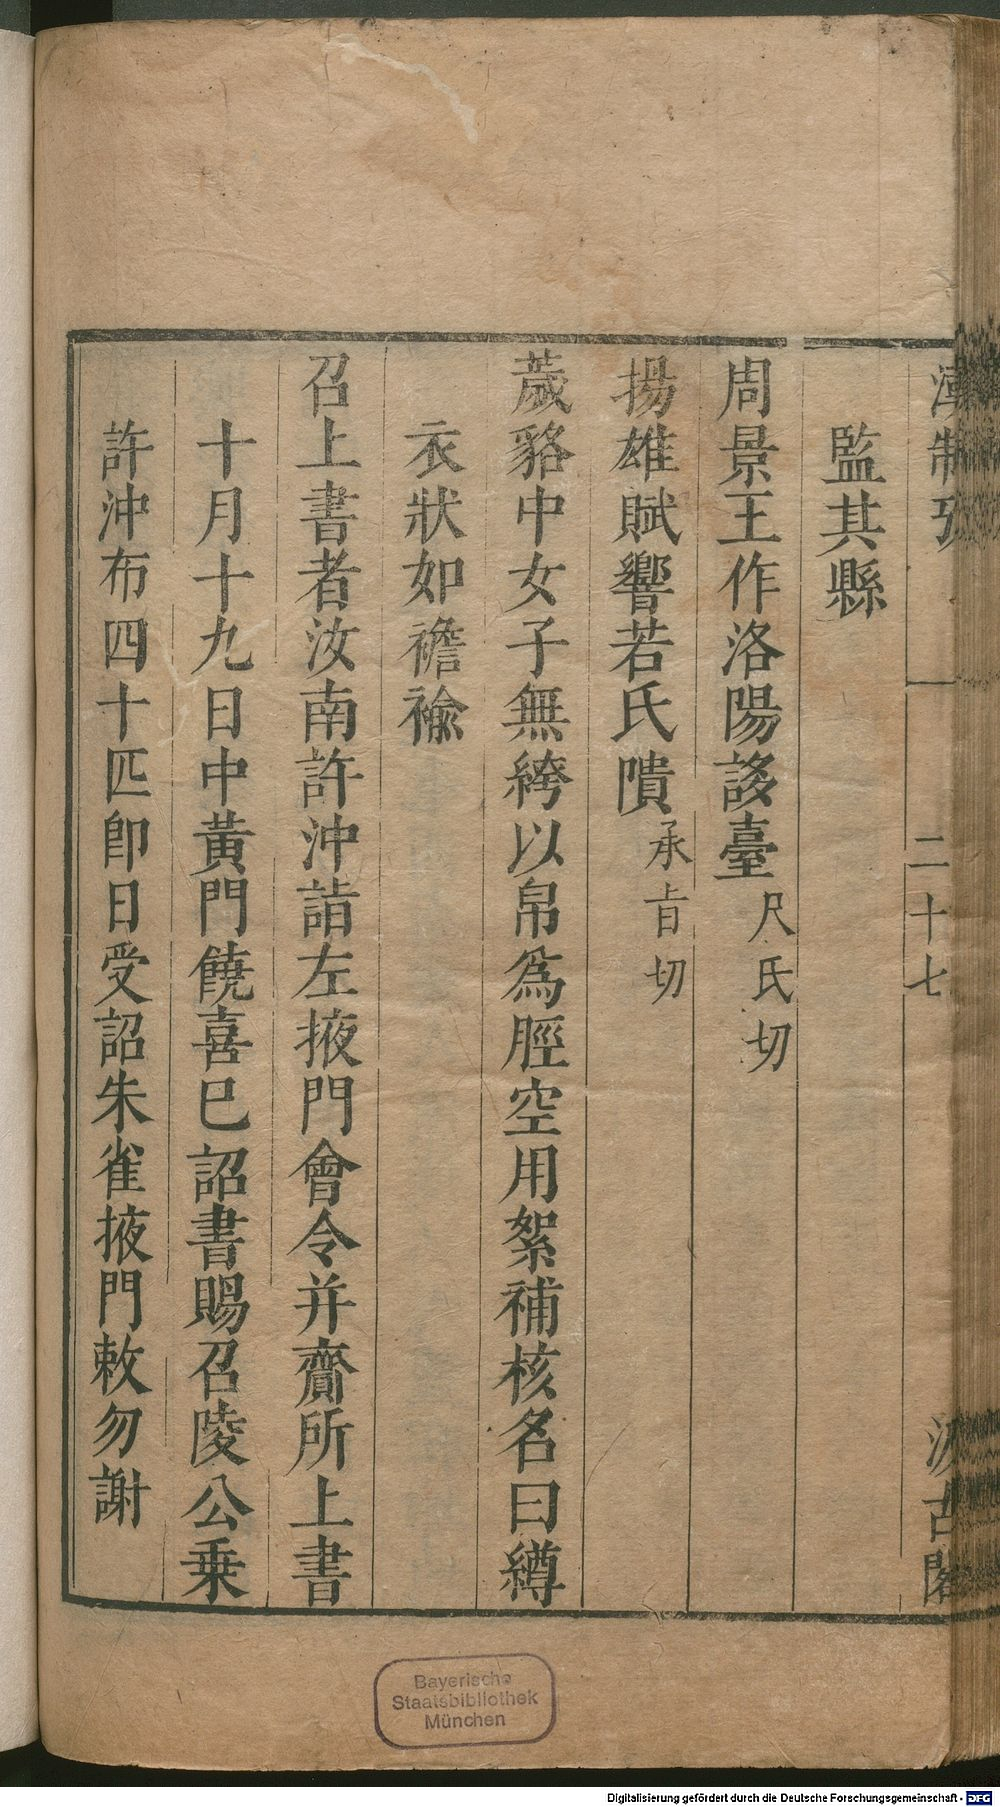 漢制攷
二十七
汲古閣
監其縣
周景王作洛陽誃臺尺氏切
揚雄賦響若氏隤承旨切
薉貉中女子無絝以帛為脛空用絮補核名曰繜
衣狀如襜褕
召上書者汝南許沖詣左掖門會令并齎所上書
十月十九日中黃門饒喜巳詔書賜召陵公乗
許沖布四十匹卽日受詔朱雀掖門敕勿謝
Bayerische
Staatsbibliothek
München
Digitalisierung gefördert durch die Deutsche Forschungsgemeinschaft - DFG